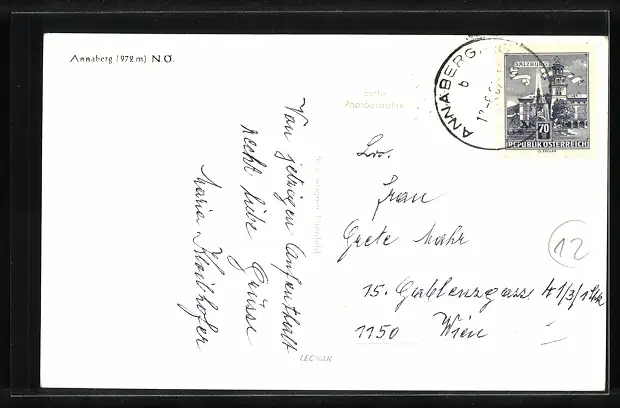 Annaberg (972m) N.Ö.
echte
Photographie
ANNABERG
6
SALZBURG
70
REPUBLIK ÖSTERREICH
Vom jetzigen Aufenthalt
recht liebe Grüsse
Maria
Frau
Grete Mahr
15. Gablenzgasse 41/3/1
1150 Wien
12